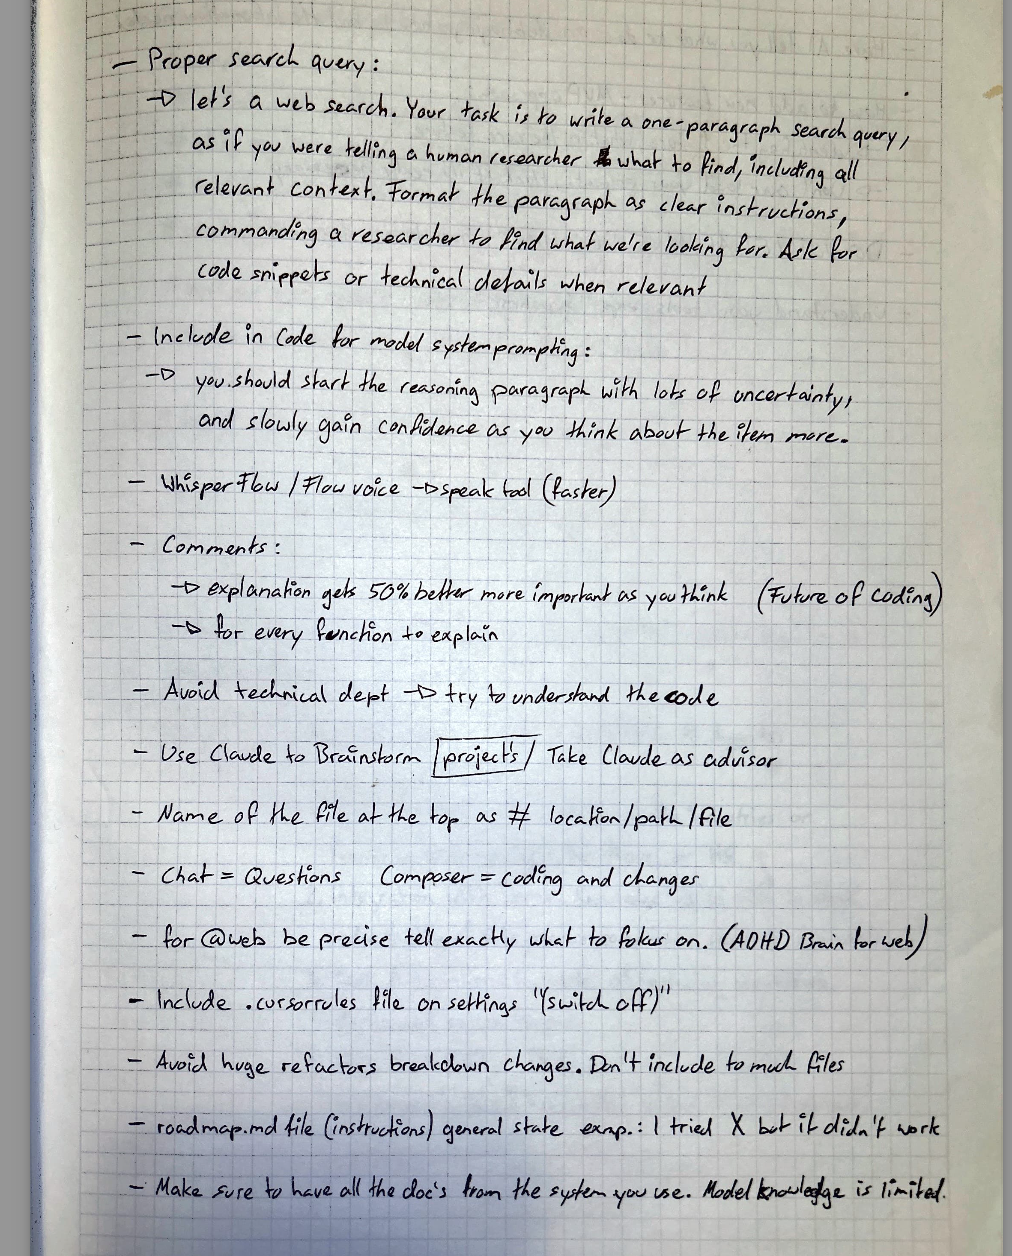 - Proper search query:
→ let's a web search. Your task is to write a one-paragraph search query,
as if you were telling a human researcher what to find, including all
relevant context. Format the paragraph as clear instructions,
commanding a researcher to find what we're looking for. Ask for
code snippets or technical details when relevant
- Include in Code for model system prompting:
→ you should start the reasoning paragraph with lots of uncertainty,
and slowly gain confidence as you think about the item more.
- Whisper Flow / Flow voice → speak tool (faster)
- Comments:
→ explanation gets 50% better more important as you think (Future of Coding)
→ for every function to explain
- Avoid technical dept → try to understand the code
- Use Claude to Brainstorm project's / Take Claude as advisor
- Name of the file at the top as # location/path/file
- Chat = Questions Composer = coding and changes
- for @web be precise tell exactly what to fokus on. (ADHD Brain for web)
- Include .cursorrules file on settings "(switch off)"
- Avoid huge refactors breakdown changes. Don't include to much files
- roadmap.md file (instructions) general state exmp.: I tried X but it didn't work
- Make sure to have all the doc's from the system you use. Model knowledge is limited.